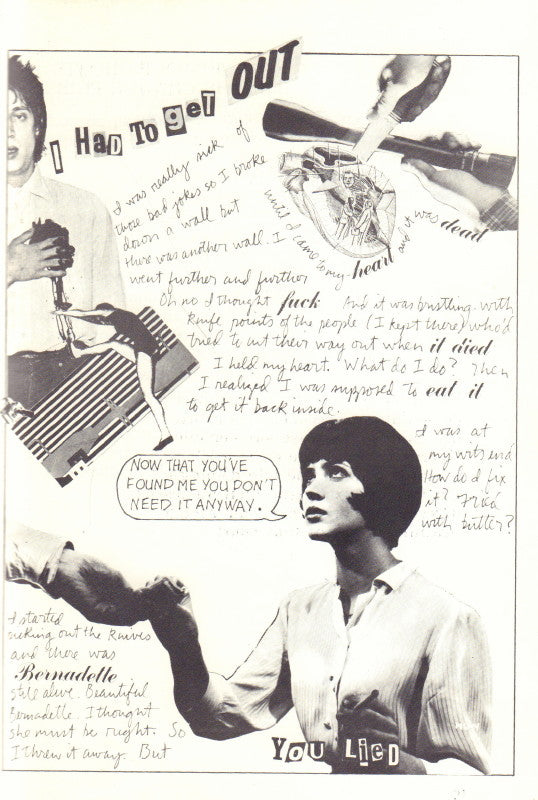 I HAD TO gET OUT
I was really sick of
those bad jokes so I broke
down a wall but
there was another wall. I
went further and further
until I came to my heart and it was dead
Oh no I thought fuck And it was bristling with
knife points of the people (I kept there) who'd
tried to cut their way out when it died
I held my heart. What do I do? Then
I realized I was supposed to eat it
to get it back inside.
I was at
my wits end
How do I fix
it? Fried
with butter?
NOW THAT YOU'VE
FOUND ME YOU DON'T
NEED IT ANYWAY.
I started
picking out the knives
and there was
Bernadette
still alive. Beautiful
Bernadette. I thought
she must be right. So
I threw it away. But
YOU LIED